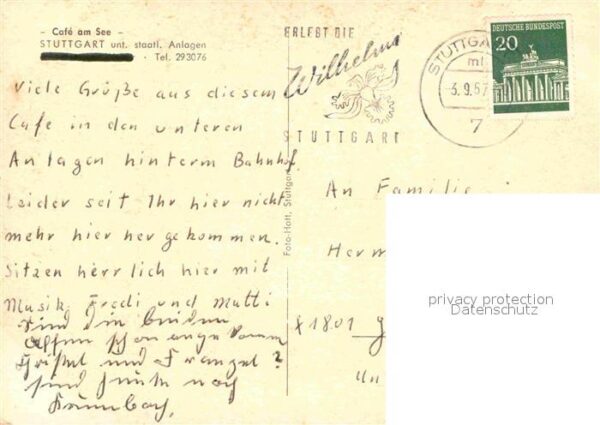 - Café am See -
STUTTGART unt. staatl. Anlagen
· Tel. 293076
Viele Grüße aus diesem
Cafe in den unteren
Anlagen hinterm Bahnhof.
Leider seit Ihr hier nicht
mehr hier her gekommen.
Sitzen herrlich hier mit
Musik. Fredi und Mutti
Sind die beiden
Affen schon angekomm
und
sind heute nach
Krumbach.
Foto-Holl, Stuttgart
ERLEBT DIE
Wilhelma
STUTTGART
STUTTGA
3.9.67
7
DEUTSCHE BUNDESPOST
20
An Familie
Herm
1801
Un
privacy protection
Datenschutz